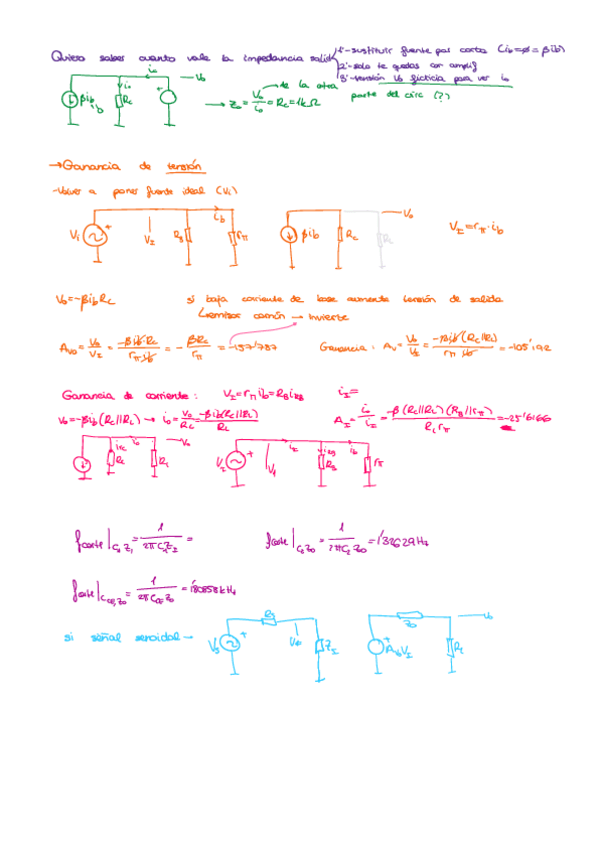 Quiero saber cuanto vale la impedancia salida
1º-sustituir fuente por corto (ib=∅=βib)
2º-solo te quedas con amplif
3º-tensión Vo ficticia para ver io
io Vo
βib ib io Rc
→ Zo = Vo/io = Rc = 1kΩ
de la otra
parte del circ (?)
→Ganancia de tensión
-Volver a poner fuente ideal (Vi)
Vi + VI RB ib rπ βib Rc RL Vo VI=rπ·ib
Vo=-βibRc si baja corriente de base aumenta tensión de salida
emisor común → Invierte
Avo = Vo/VI = -βib·Rc/rπ·ib = -βRc/rπ = -157'787
Ganancia: Av = Vo/VI = -βib(Rc//RL)/rπ·ib = -105'192
Ganancia de corriente: VI=rπ ib=RB iRB iI=
Vo=-βib(Rc//RL) → io = Vo/RL = -βib(Rc//RL)/RL
AI = io/iI = -β(Rc//RL)(RB//rπ)/RL rπ = -25'6166
iRc Rc io RL Vo VI + iI iRB RB ib rπ
fcorte|C1,ZI = 1/2πC1ZI =
fcorte|C2,Zo = 1/2πC2Zo =
fcorte|CCE,Zo = 1/2πCCEZo =
si señal senoidal→
VS + RS ZI + AvVI Zo RL Vo